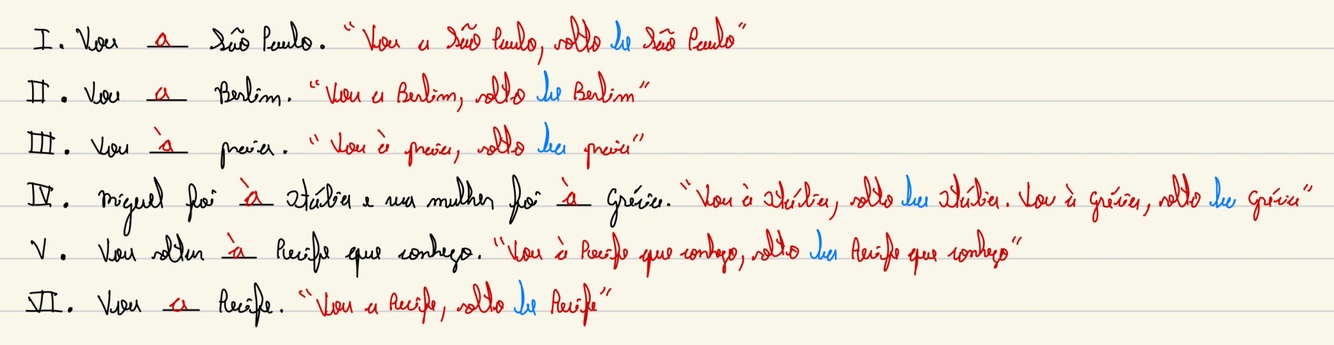 I. Vou a São Paulo. "Vou a São Paulo, volto de São Paulo"
II. Vou a Berlim. "Vou a Berlim, volto de Berlim"
III. Vou à praia. "Vou à praia, volto da praia"
IV. Miguel foi à Itália e sua mulher foi à Grécia. "Vou à Itália, volto da Itália. Vou à Grécia, volto da Grécia"
V. Vou voltar à Recife que conheço. "Vou à Recife que conheço, volto da Recife que conheço"
VI. Vou a Recife. "Vou a Recife, volto de Recife"